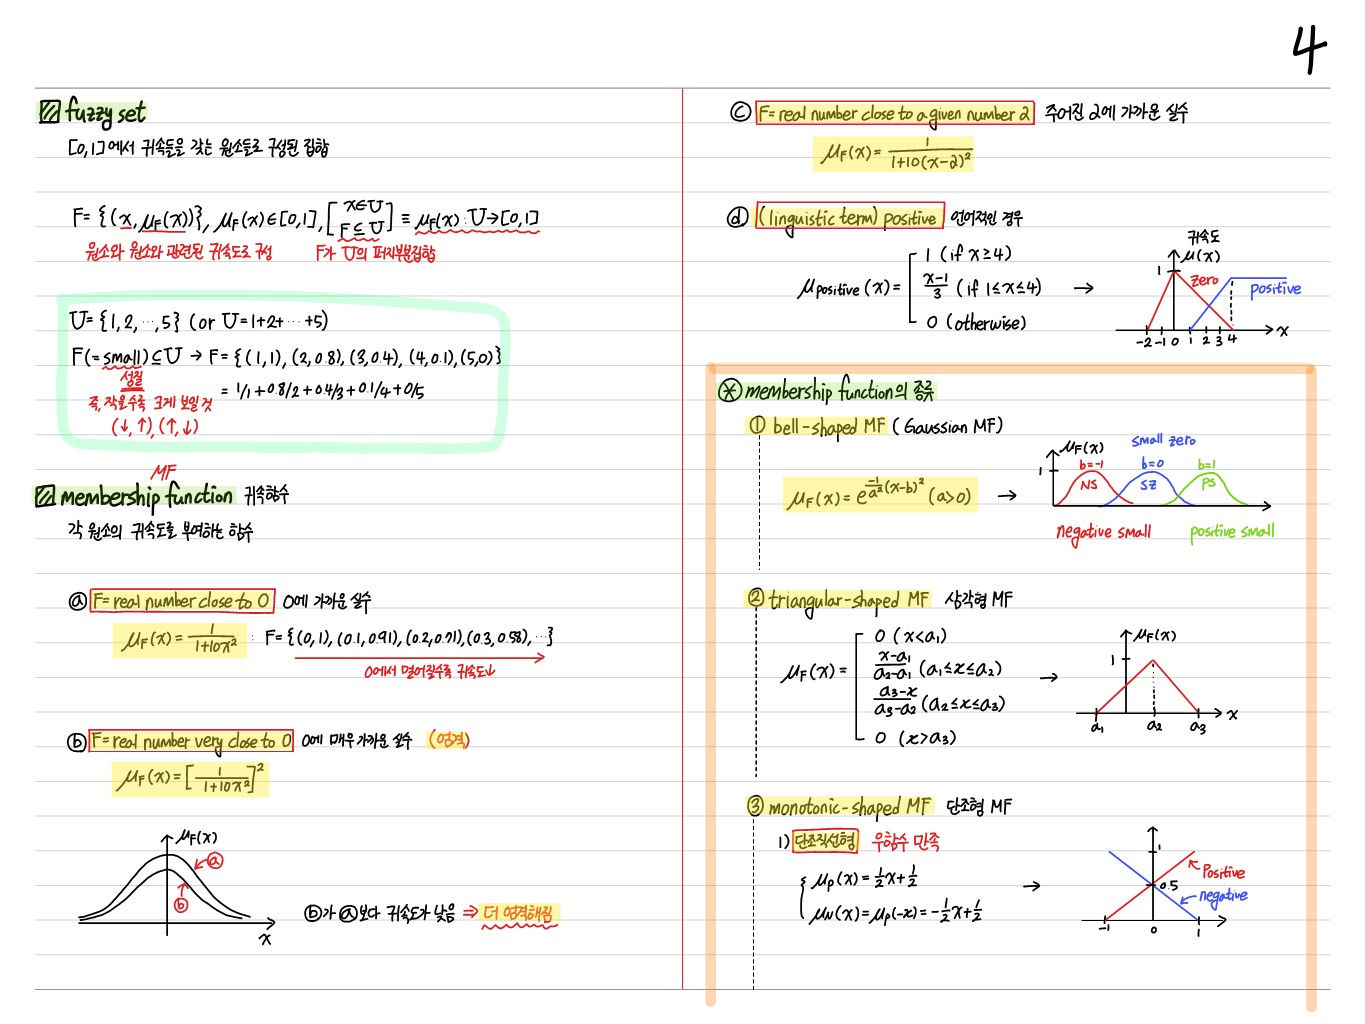 4
fuzzy set
[0,1]에서 귀속들을 갖는 원소들로 구성된 집합
F={(x,μF(x))}, μF(x)∈[0,1], [x∈U F⊆U] ≡ μF(x):U→[0,1]
원소와 원소와 관련된 귀속도로 구성 F가 U의 퍼지부분집합
U={1,2,⋯,5} (or U=1+2+⋯+5)
F(=small)⊆U → F={(1,1),(2,0.8),(3,0.4),(4,0.1),(5,0)}
성질
= 1/1+0.8/2+0.4/3+0.1/4+0/5
즉, 작을수록 크게 보일 것
(↓,↑),(↑,↓)
MF
membership function 귀속함수
각 원소의 귀속도로 부여하는 함수
ⓐ F=real number close to 0 0에 가까운 실수
μF(x)=1/(1+10x²) : F={(0,1),(0.1,0.91),(0.2,0.71),(0.3,0.58),⋯}
0에서 멀어질수록 귀속도↓
ⓑ F=real number very close to 0 0에 매우 가까운 실수 (엄격)
μF(x)=[1/(1+10x²)]²
μF(x)
ⓐ
ⓑ
x
ⓑ가 ⓐ보다 귀속도가 낮음 ⇒ 더 엄격해짐
ⓒ F=real number close to a given number 2 주어진 2에 가까운 실수
μF(x)=1/(1+10(x-2)²)
ⓓ (linguistic term) positive 언어적인 경우
μpositive(x)=
1 (if x≥4)
(x-1)/3 (if 1≤x≤4) →
0 (otherwise)
귀속도
μ(x)
1
zero
positive
-2 -1 0 1 2 3 4 x
membership function의 종류
① bell-shaped MF (Gaussian MF)
μF(x)=e^(-1/a²(x-b)²) (a>0) →
small zero
μF(x)
1
b=-1 b=0 b=1
NS SZ PS
negative small positive small
② triangular-shaped MF 삼각형 MF
μF(x)=
0 (x<a₁)
(x-a₁)/(a₂-a₁) (a₁≤x≤a₂)
(a₃-x)/(a₃-a₂) (a₂≤x≤a₃)
0 (x>a₃)
→
μF(x)
1
a₁ a₂ a₃ x
③ monotonic-shaped MF 단조형 MF
1) 단조직선형 우함수 만족
μP(x)=½x+½
μN(x)=μP(-x)=-½x+½
→
1
Positive
0.5
negative
-1 0 1